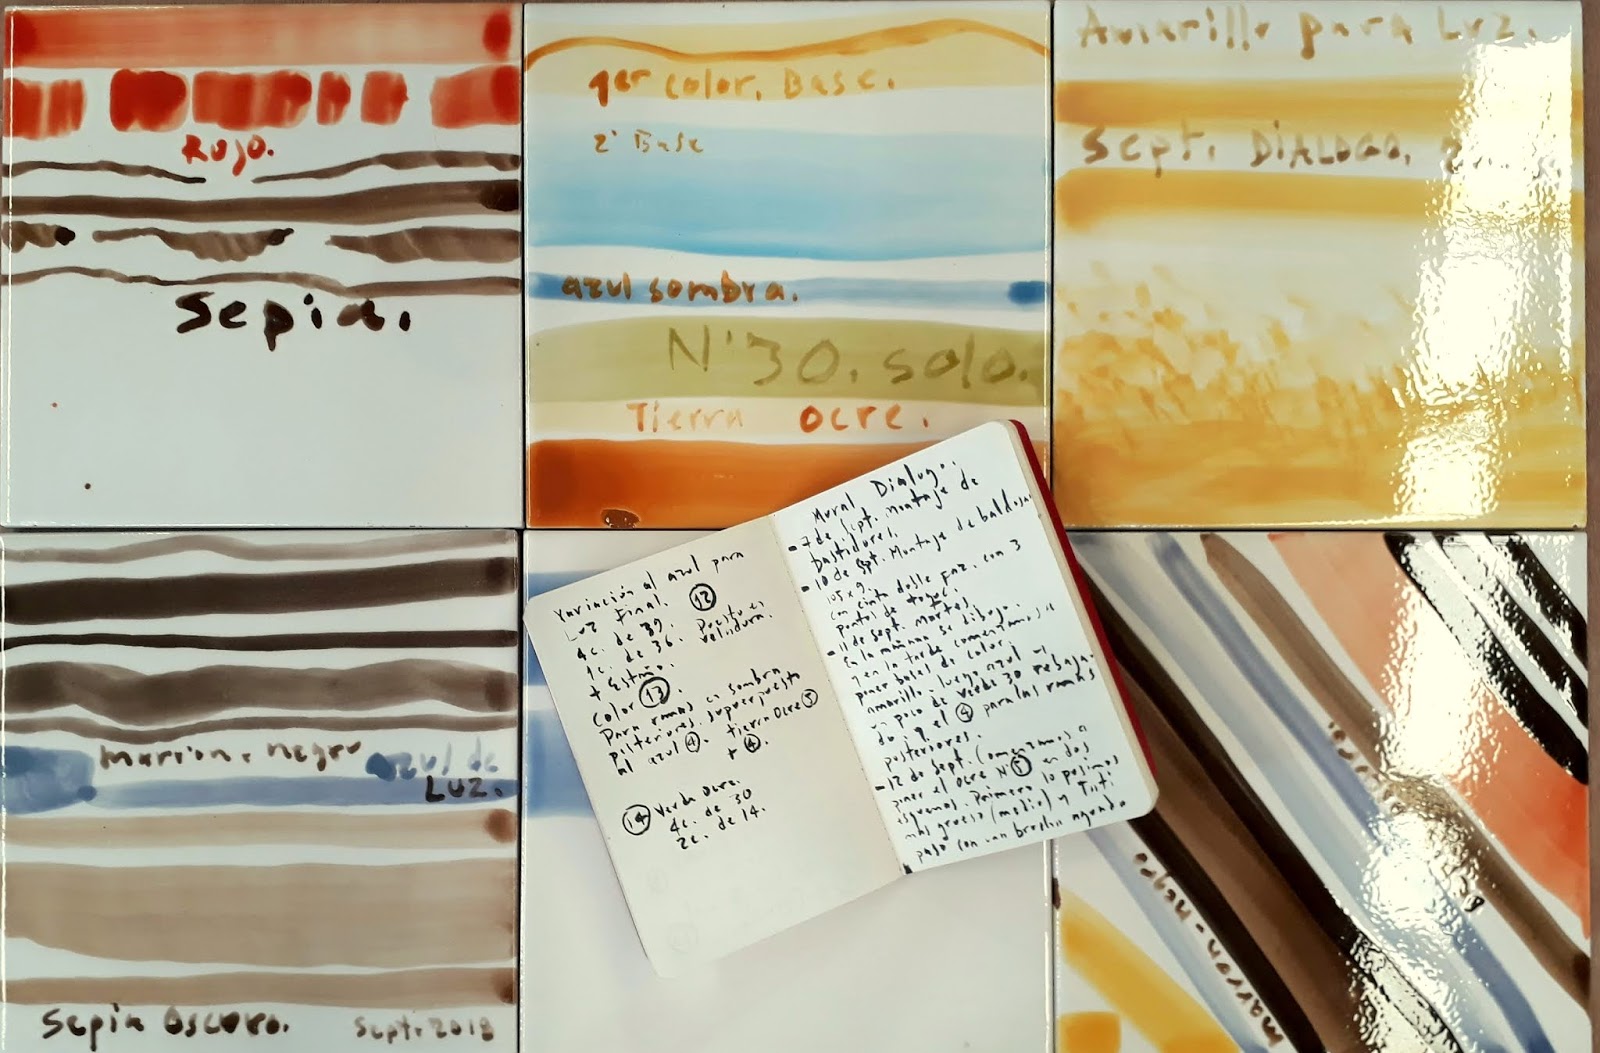 Rojo.
Sepia.
1er color. Base.
2ª Base
azul sombra.
N°30. solo.
Tierra Ocre.
Amarillo para Luz.
Sept. DIALOGO.
marron. negro
azul de
LUZ.
Sepia Oscuro.
Sept. 2018
Variación al azul para
Luz Final. 12
4c. de 39.
1c. de 36. Puesto en
+ Estaño. veladura.
color 13.
Para ramas en sombra
posteriores. superpuesto
al azul 4. tierra Ocre 5
+ 4.
14 Verde Ocre.
4c. de 30
2c. de 14.
Mural Dialogo.
- 7 de Sept. Montaje de
bastidores.
- 10 de Spt. Montaje de baldosas
105 x 9.
con cinta doble faz. con 3
puntos de toque.
- 11 de Sept. Martes.
En la mañana se dibujo.
y en la tarde comenzamos a
poner bolal de color.
amarillo. luego azul y
un poco de verde 30 rebaja-
do. y el 4 para las ramas
posteriores.
- 12 de Sept. Comenzamos a
poner el Ocre N°5 en dos
esquemas. Primero lo pusimos
mas grueso (medio) y
paso con un brocha aguando
marron-negro